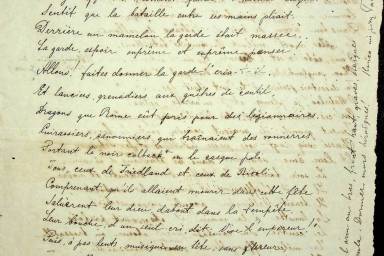 Sentit que la bataille entre ses mains pliait.
Derrière un mamelon la garde était massée.
La garde, espoir suprême et suprême pensée!
Allons! faites donner la garde! cria-t-il
Et lanciers, grenadiers aux guêtres de coutil,
Dragons que Rome eût pris pour des légionnaires,
Cuirassiers, canonniers qui traînaient des tonnerres
Portant le noir colback ou le casque poli
Tous, ceux de Friedland et ceux de Rivoli
Comprenant qu'ils allaient mourir dans cette fête
Saluèrent leur dieu, debout dans la tempête
Leur bouche, d'un seul cri, dit Vive l'empereur!
Puis, à pas lents, musique en tête, sans fureur